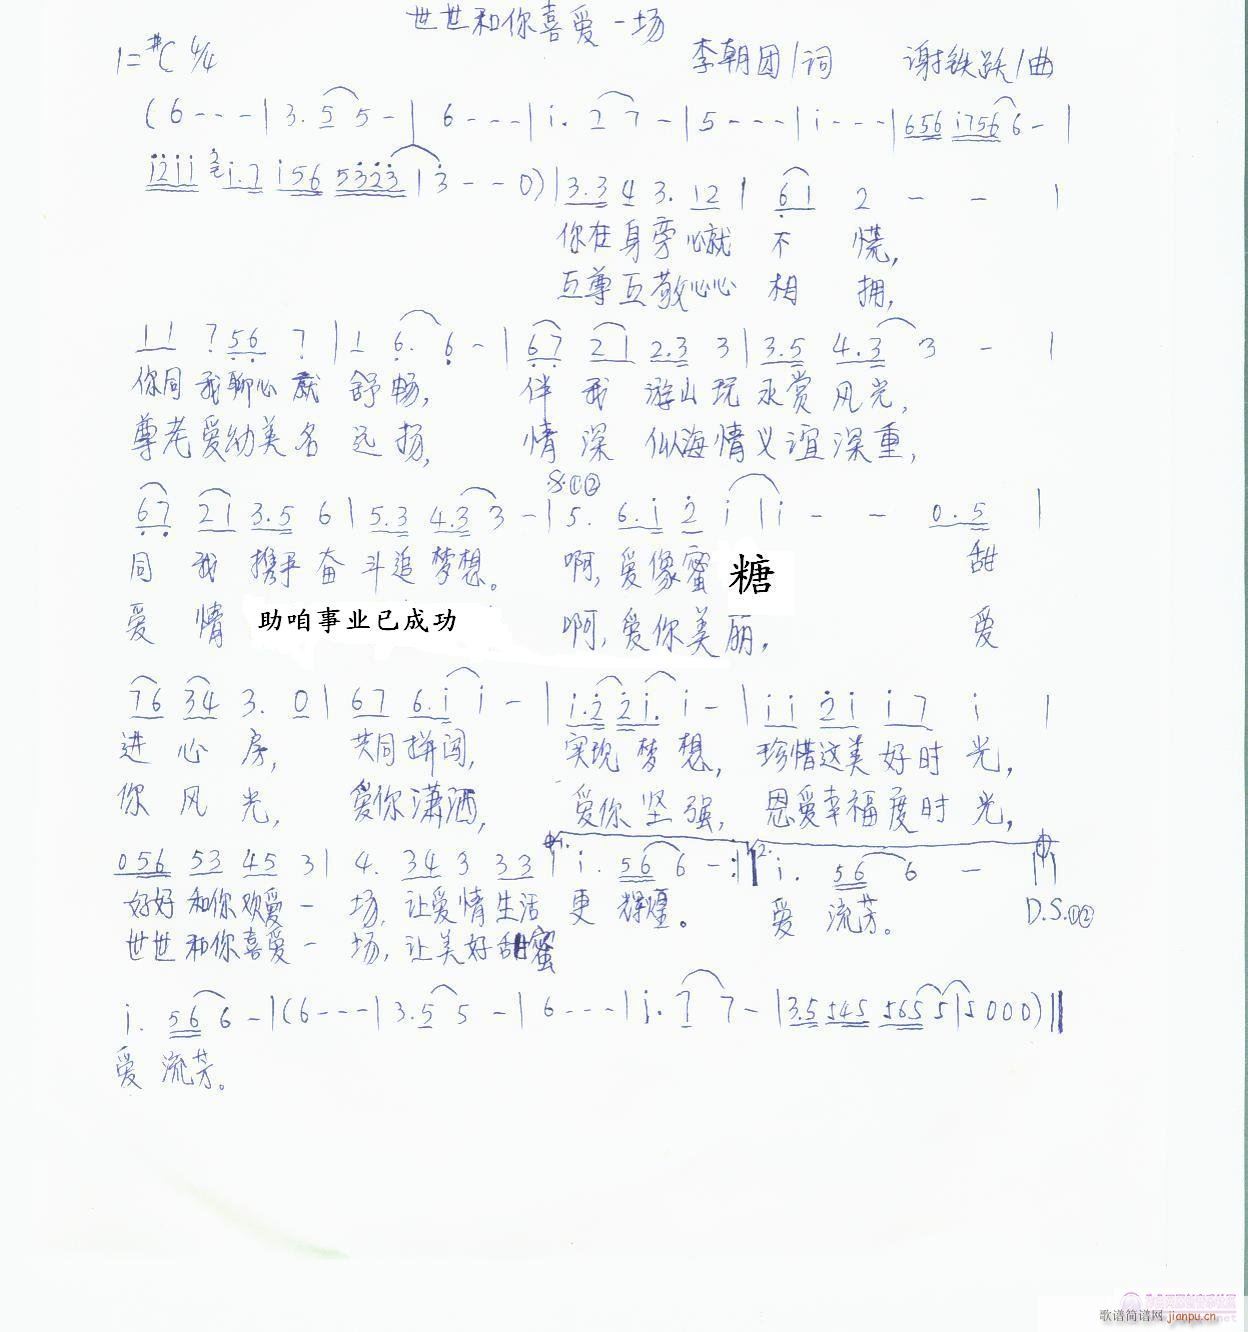 世世和你喜爱一场
1=#C 4/4 李朝团/词 谢铁跃/曲
(6---|3.5 5-|6---|i.2 7-|5---|i---|656 i756 6-|
i2ii 2 i.7 i56 5323|3--0)|3.3 4 3.12|61 2 - - |
你在身旁心就不慌,
互尊互敬心心相拥,
11 7 56 7|1 6. 6-|67 21 2.3 3|3.5 4.3 3 - |
你同我聊心就舒畅, 伴我游山玩水赏风光,
尊老爱幼美名远扬, 情深似海情义谊深重,
𝄋①②
67 21 3.5 6|5.3 4.3 3-|5. 6.i 2 i|i - - 0.5|
同我携手奋斗追梦想。 啊,爱像蜜糖 甜
爱情助咱事业已成功 啊,爱你美丽, 爱
76 34 3. 0|67 6.i i-|i.2 2i. i-|ii 2i i7 i|
进心房, 共同拼闯, 实现梦想, 珍惜这美好时光,
你风光, 爱你潇洒, 爱你坚强, 恩爱幸福度时光,
056 53 45 3|4. 34 3 33|1. i. 56 6-:|2. i. 56 6 - ||
好好和你欢爱一场,让爱情生活更辉煌。 爱流芳。 D.S.①②
世世和你喜爱一场,让美好甜蜜
i. 56 6-|(6---|3.5 5-|6---|i.7 7-|3.5 545 565 5|5000)||
爱流芳。
歌谱简谱网 jianpu.cn